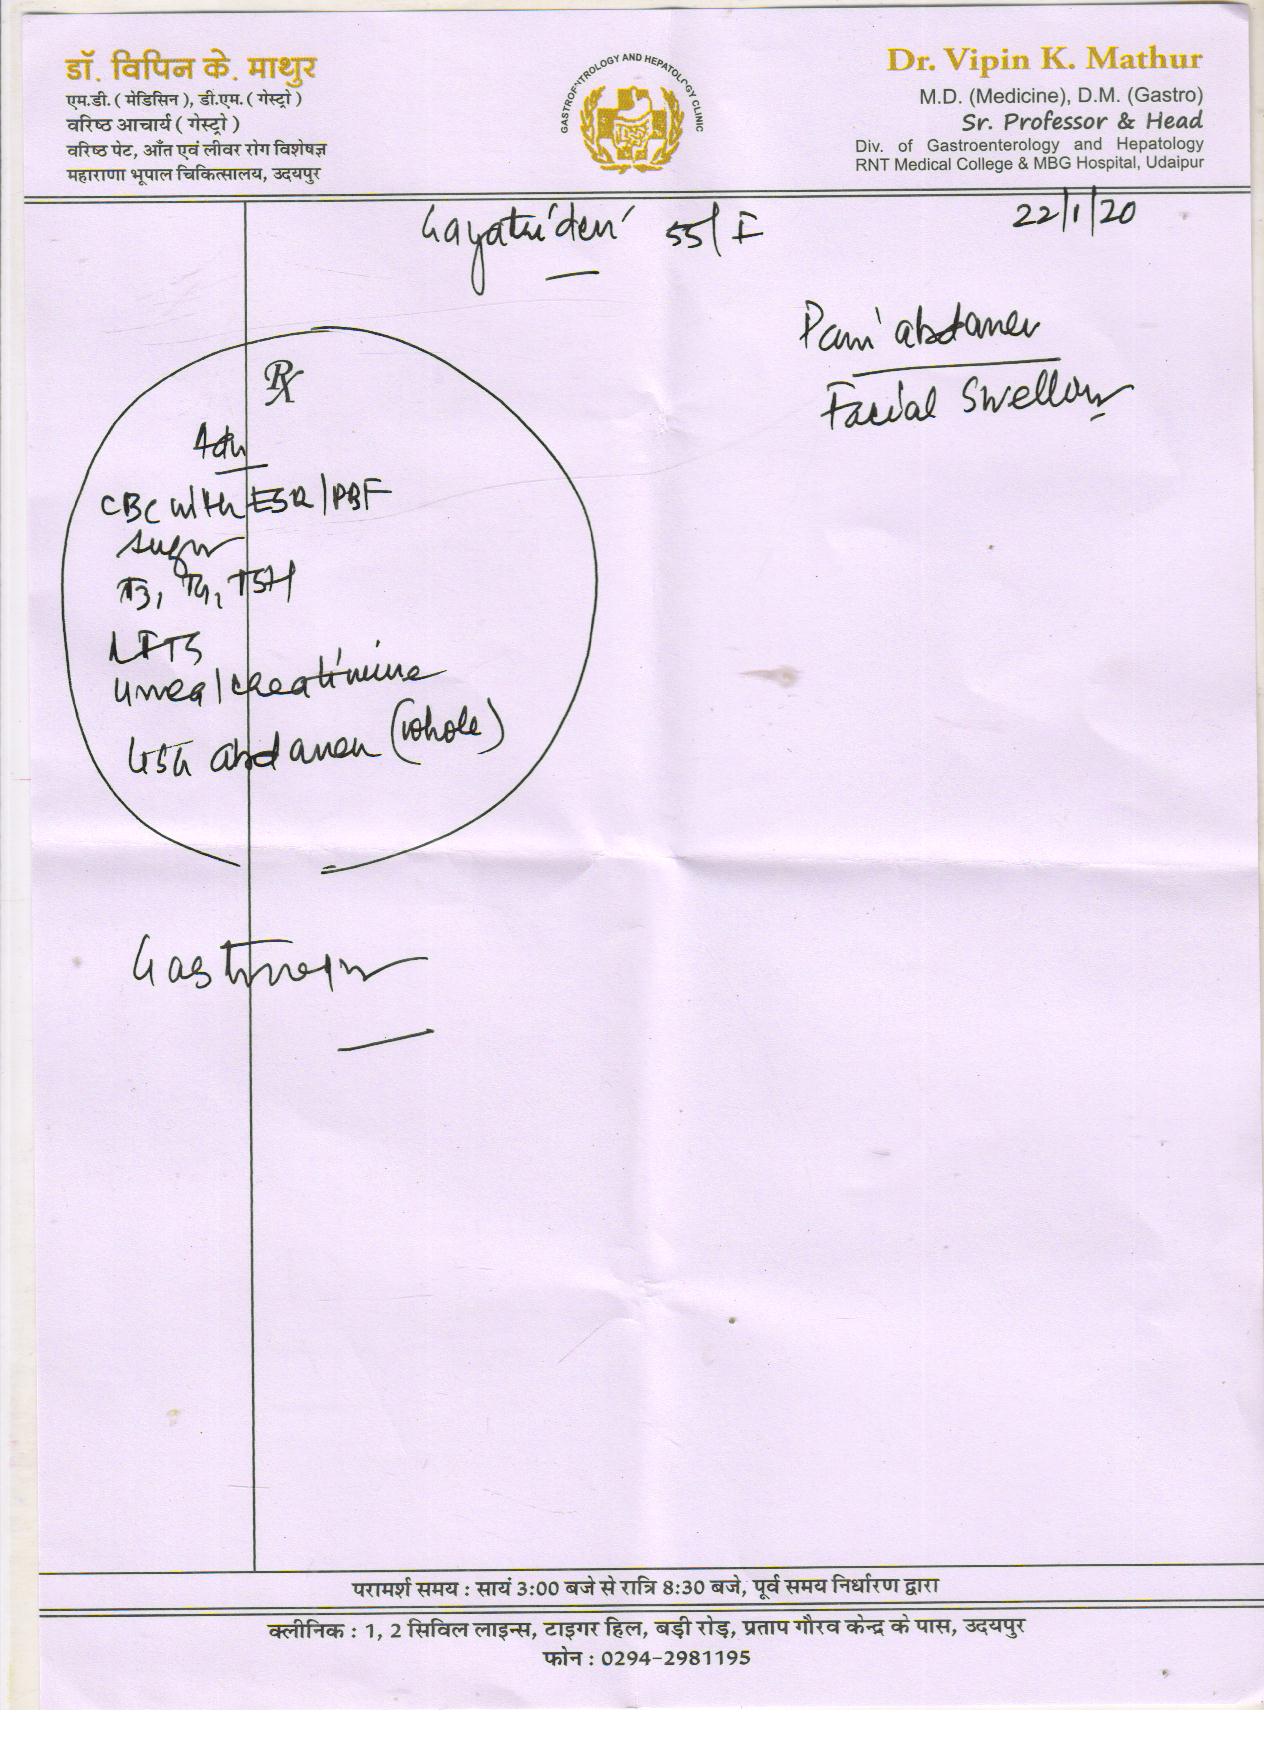 डॉ. विपिन के. माथुर
एम.डी. ( मेडिसिन ), डी.एम. ( गेस्ट्रो )
वरिष्ठ आचार्य ( गेस्ट्रो )
वरिष्ठ पेट, आँत एवं लीवर रोग विशेषज्ञ
महाराणा भूपाल चिकित्सालय, उदयपुर
GASTROENTROLOGY AND HEPATOLOGY CLINIC
Dr. Vipin K. Mathur
M.D. (Medicine), D.M. (Gastro)
Sr. Professor & Head
Div. of Gastroenterology and Hepatology
RNT Medical College & MBG Hospital, Udaipur
Gayatri devi 55/F
22/1/20
Pain abdomen
Facial Swelling
Rx
Adv
CBC with ESR/PBF
Sugar
T3, T4, TSH
LFTS
Urea/creatinine
USG abdomen (whole)
परामर्श समय : सायं 3:00 बजे से रात्रि 8:30 बजे, पूर्व समय निर्धारण द्वारा
क्लीनिक : 1, 2 सिविल लाइन्स, टाइगर हिल, बड़ी रोड़, प्रताप गौरव केन्द्र के पास, उदयपुर
फोन : 0294-2981195